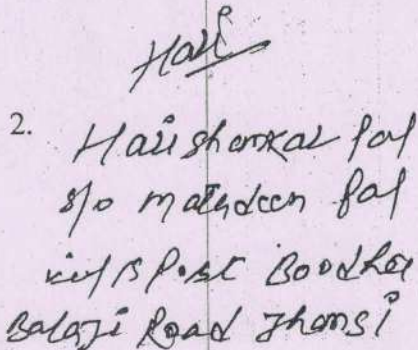 Hari
2. Harishankar Pal
S/o Matadeen Pal
vill & Post Boodha
Balaji Road Jhansi